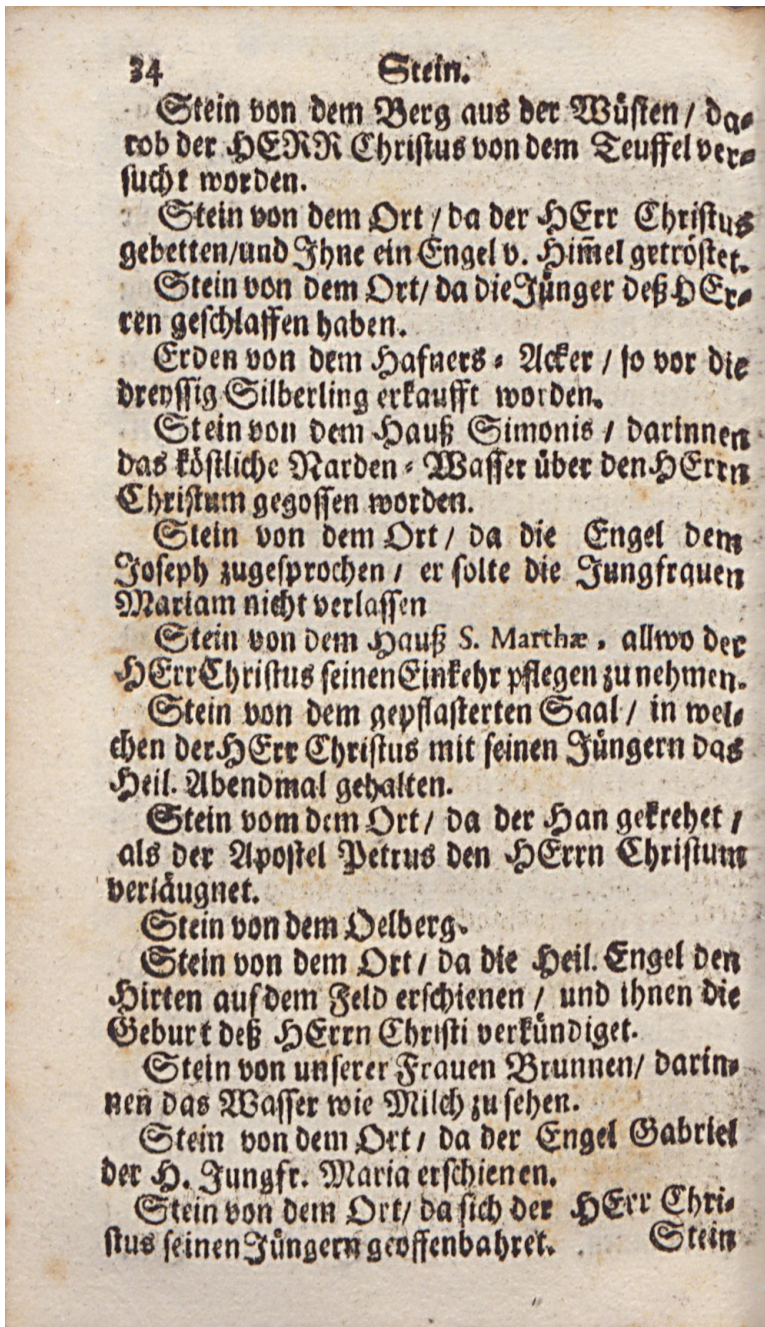 34 Stein.
Stein von dem Berg aus der Wüsten / da-
rob der HERR Christus von dem Teuffel ver-
sucht worden.
Stein von dem Ort / da der HErr Christus
gebetten/und Ihne ein Engel v. Him̄el getröstet.
Stein von dem Ort/ da die Jünger deß HEr-
ren geschlaffen haben.
Erden von dem Hafners-Acker / so vor die
dreyssig Silberling erkaufft worden.
Stein von dem Hauß Simonis / darinnen
das köstliche Narden-Wasser über den HErrn
Christum gegossen worden.
Stein von dem Ort / da die Engel dem
Joseph zugesprochen / er solte die Jungfrauen
Mariam nicht verlassen
Stein von dem Hauß S. Marthæ, allwo der
HErr Christus seinen Einkehr pflegen zu nehmen.
Stein von dem gepflasterten Saal / in wel-
chen der HErr Christus mit seinen Jüngern das
Heil. Abendmal gehalten.
Stein vom dem Ort / da der Han gekrehet /
als der Apostel Petrus den HErrn Christum
verläugnet.
Stein von dem Oelberg.
Stein von dem Ort / da die Heil. Engel den
Hirten auf dem Feld erschienen / und ihnen die
Geburt deß HErrn Christi verkündiget.
Stein von unserer Frauen Brunnen/ darin-
nen das Wasser wie Milch zu sehen.
Stein von dem Ort / da der Engel Gabriel
der H. Jungfr. Maria erschienen.
Stein von dem Ort/ da sich der HErr Chri-
stus seinen Jüngern geoffenbahret. Stein